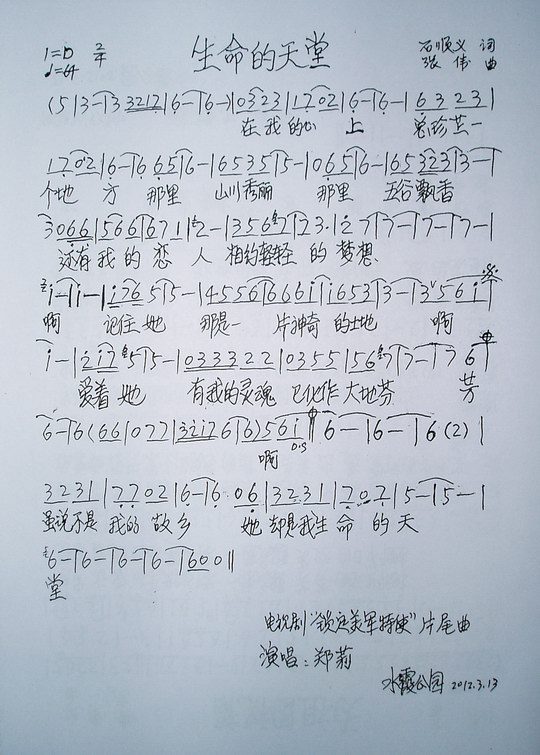 生命的天堂
1=D 2/4
♩=64
石顺义 词
张伟 曲
(5|3-|3 3217|6-|6-)|0323|1702|6-|6-|6323|
在我的心上 珍芷一
1702|6-|6 65|6-|6535|5-|065|6-|65323|3-|
个地方 那里 山川秀丽 那里 五谷飘香
3066|566|671|2-|3567|723.i27|7-|7-|7-|
还有我的恋人 相约轻轻的梦想
i-|i-|i765|5-|4556|666i|i653|3-|3 56i|
啊 记住她 那是一片神奇的土地 啊
i-|2i7|5-|5-|033322|0355|567|7-|76|
爱着她 有我的灵魂 已化作大地芬芳
6-|6(66|077|32i76|6)56i|6-|6-|6(2)|
啊 D.S
3231|7702|6-|6 06|3231|7.07|5-|5-|
虽说不是我的故乡 她却是我生命的天
6-|6-|6-|6-|600‖
堂
电视剧"锁定美军特使"片尾曲
演唱：郑莉
水霞公园 2012.3.13